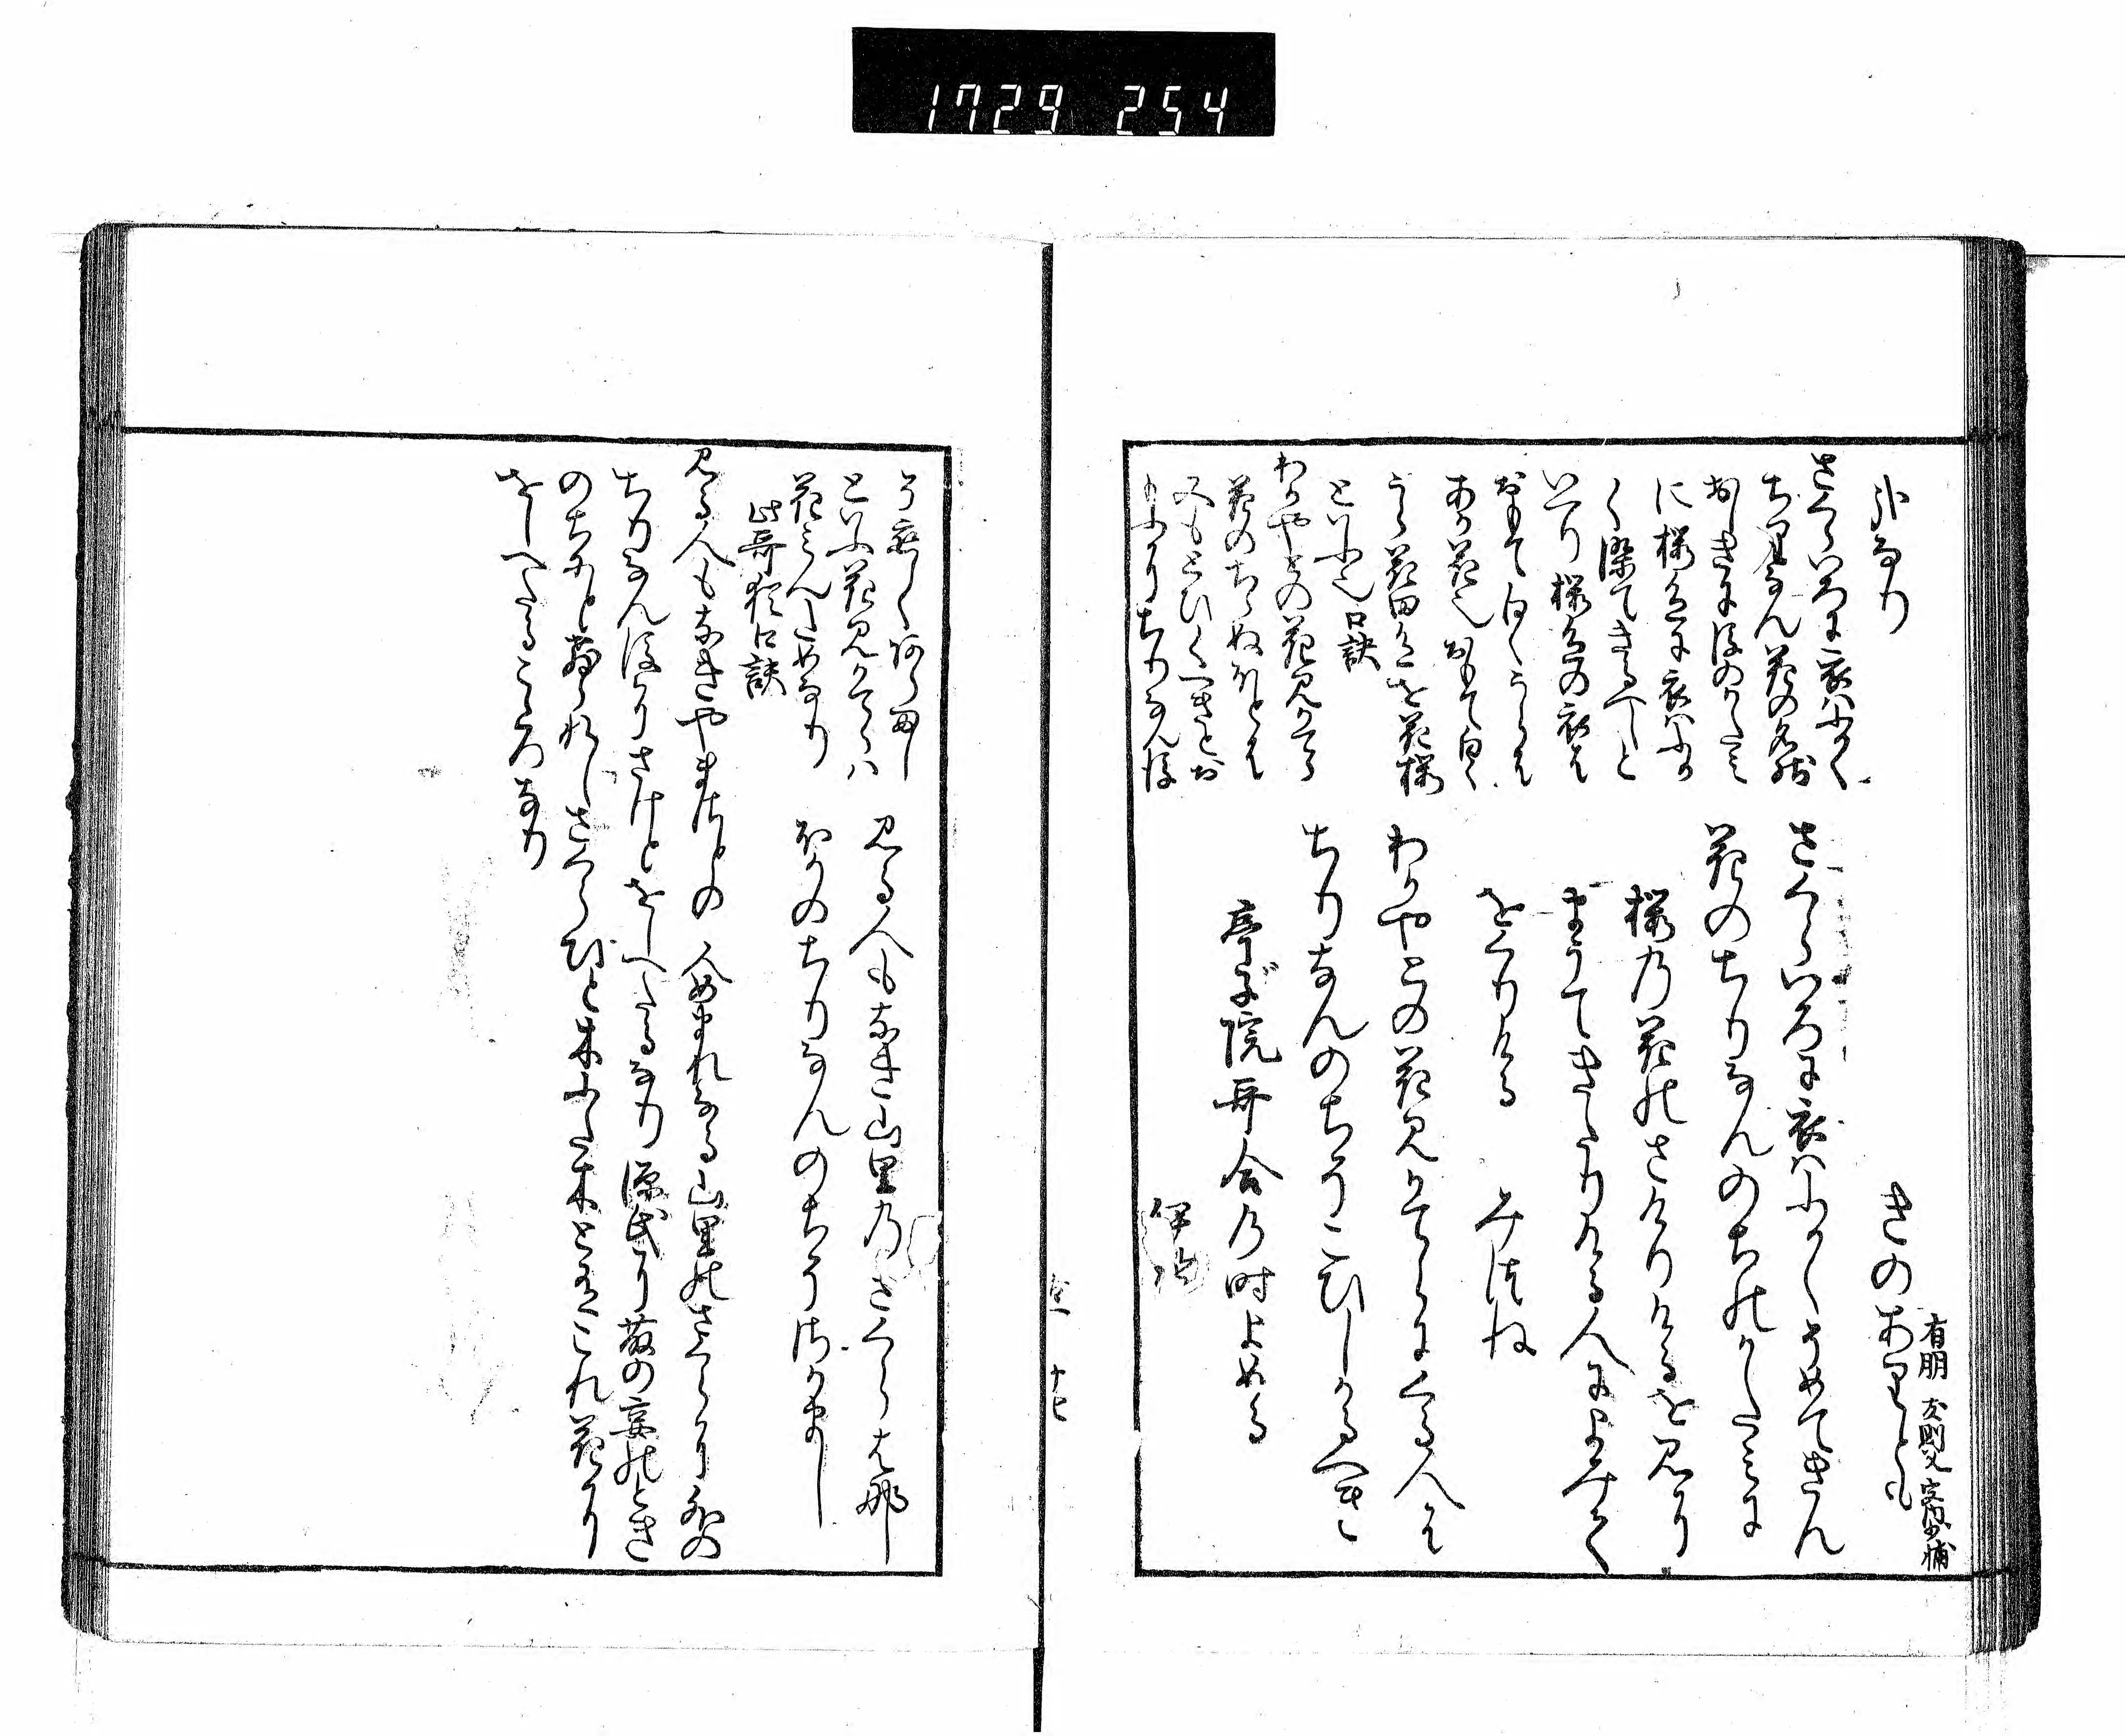 1729 254
きのありとも
有朋 友則父 宮内少輔
さくらいろに衣はふかくそめてきん
花のちりなんのちのかたみに
桜乃花のさけりけるを見に
まうてきたりける人によみて
をくりける みつね
わかやとの花見かてらにくる人は
ちりなんのちそこひしかるへき
亭子院哥合乃時よめる
伊勢
さくらいろに衣はふかく
ちりなん花の名残
おしきに後のかたみ
に桜色に衣はふか
く染てきるへしと
いへり桜色の衣は
おもて白くうらは
あか花也おもて白く
うら花田色を花桜
といふ也口訣
わかやとの花見かてら
花のちらぬほとは
ちりなん後
といふ花見かてらハ
花みんためなり
此哥猶口訣
見る人もなき山里乃さくらはな
ほかのちりなんのちそさかまし
見る人もなきやまさとの 人めまれなる山里のさくらに外の
ちりなん後にさけとをしへたるなり 源氏に藤の宴のとき
のちにと習れしさくらひと木ふた木と有これ花に
をしへたるこころなり
十七